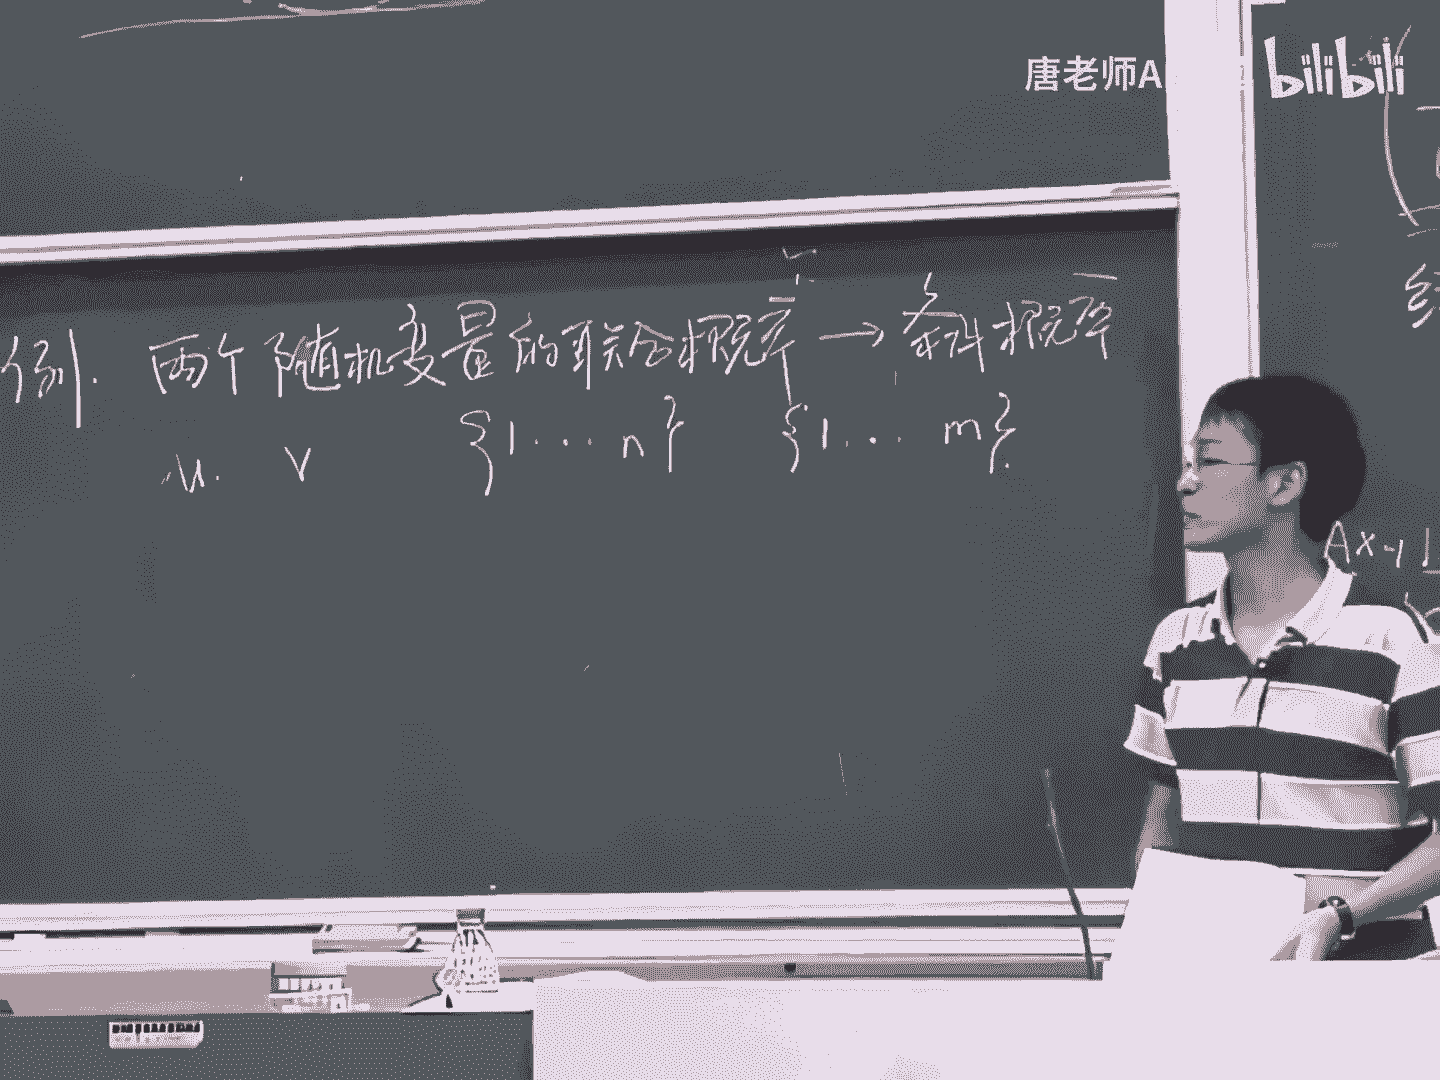 唐老师A
bilibili
例. 两个随机变量的联合概率 → 条件概率
u. v {1 ... n} {1 ... m}.
Ax-1